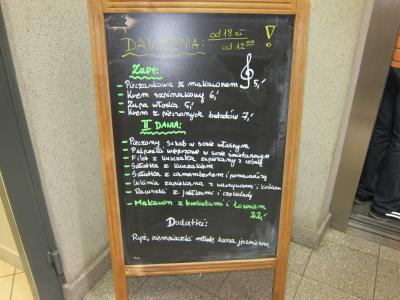 DANIA DNIA: od 18 zł !
od 12⁰⁰
ZUPY:
- Pieczarkowa z makaronem 5,-
- Krem szpinakowy 6,-
- Zupa włoska 5,-
- Krem z pieczonych batatów 7,-
II DANIA:
- Pieczony schab w sosie własnym
- Polędwiczki wieprzowe w sosie śmietanowym
- Filet z kurczaka zapiekany z
- Sałatka z kurczakiem
- Sałatka z camembertem i pomarańczą
- Cukinia zapiekana z warzywami i
- Racuszki z jabłkami i czekoladą
- Makaron z brokułami i łososiem
22,-
Dodatki:
Ryż, ziemniaczki młode, kasza jęczmienna